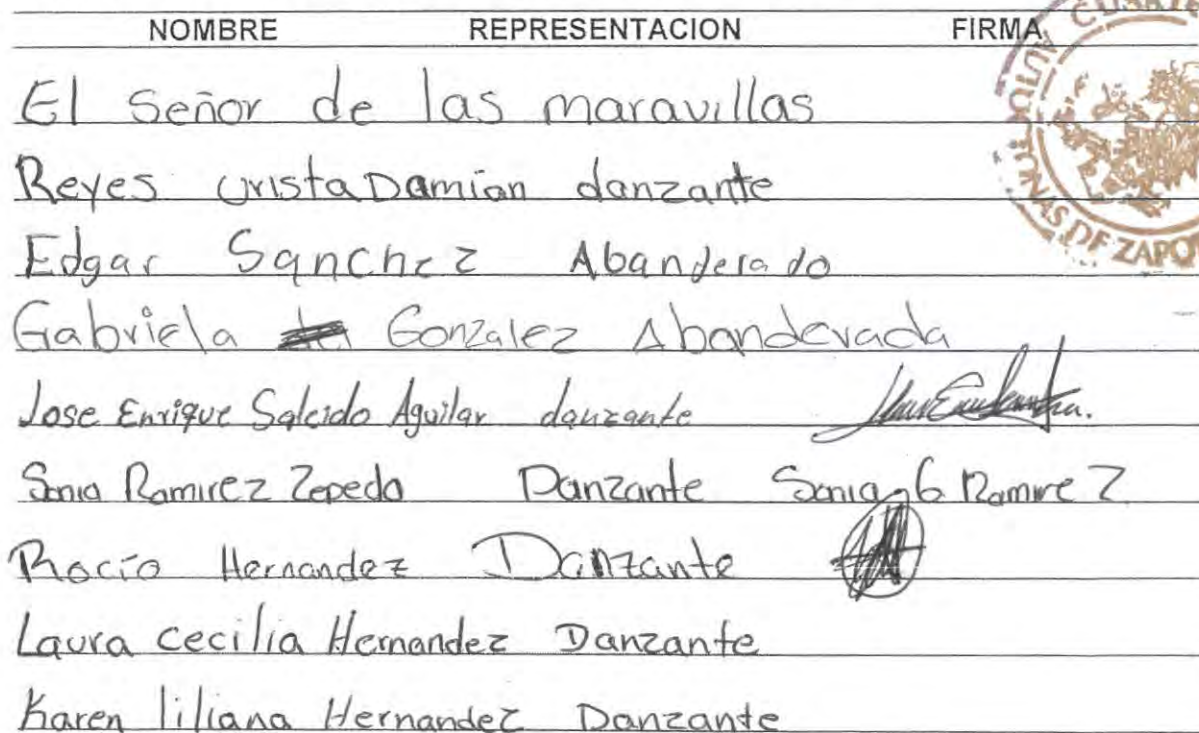 NOMBRE REPRESENTACION FIRMA
El Señor de las maravillas
Reyes Urista Damian danzante
Edgar Sanchez Abanderado
Gabriela Gonzalez Abanderada
Jose Enrique Salcido Aguilar danzante
Sonia Ramirez Zepeda Danzante Sonia G Ramirez
Rocío Hernandez Danzante
Laura cecilia Hernandez Danzante
Karen liliana Hernandez Danzante